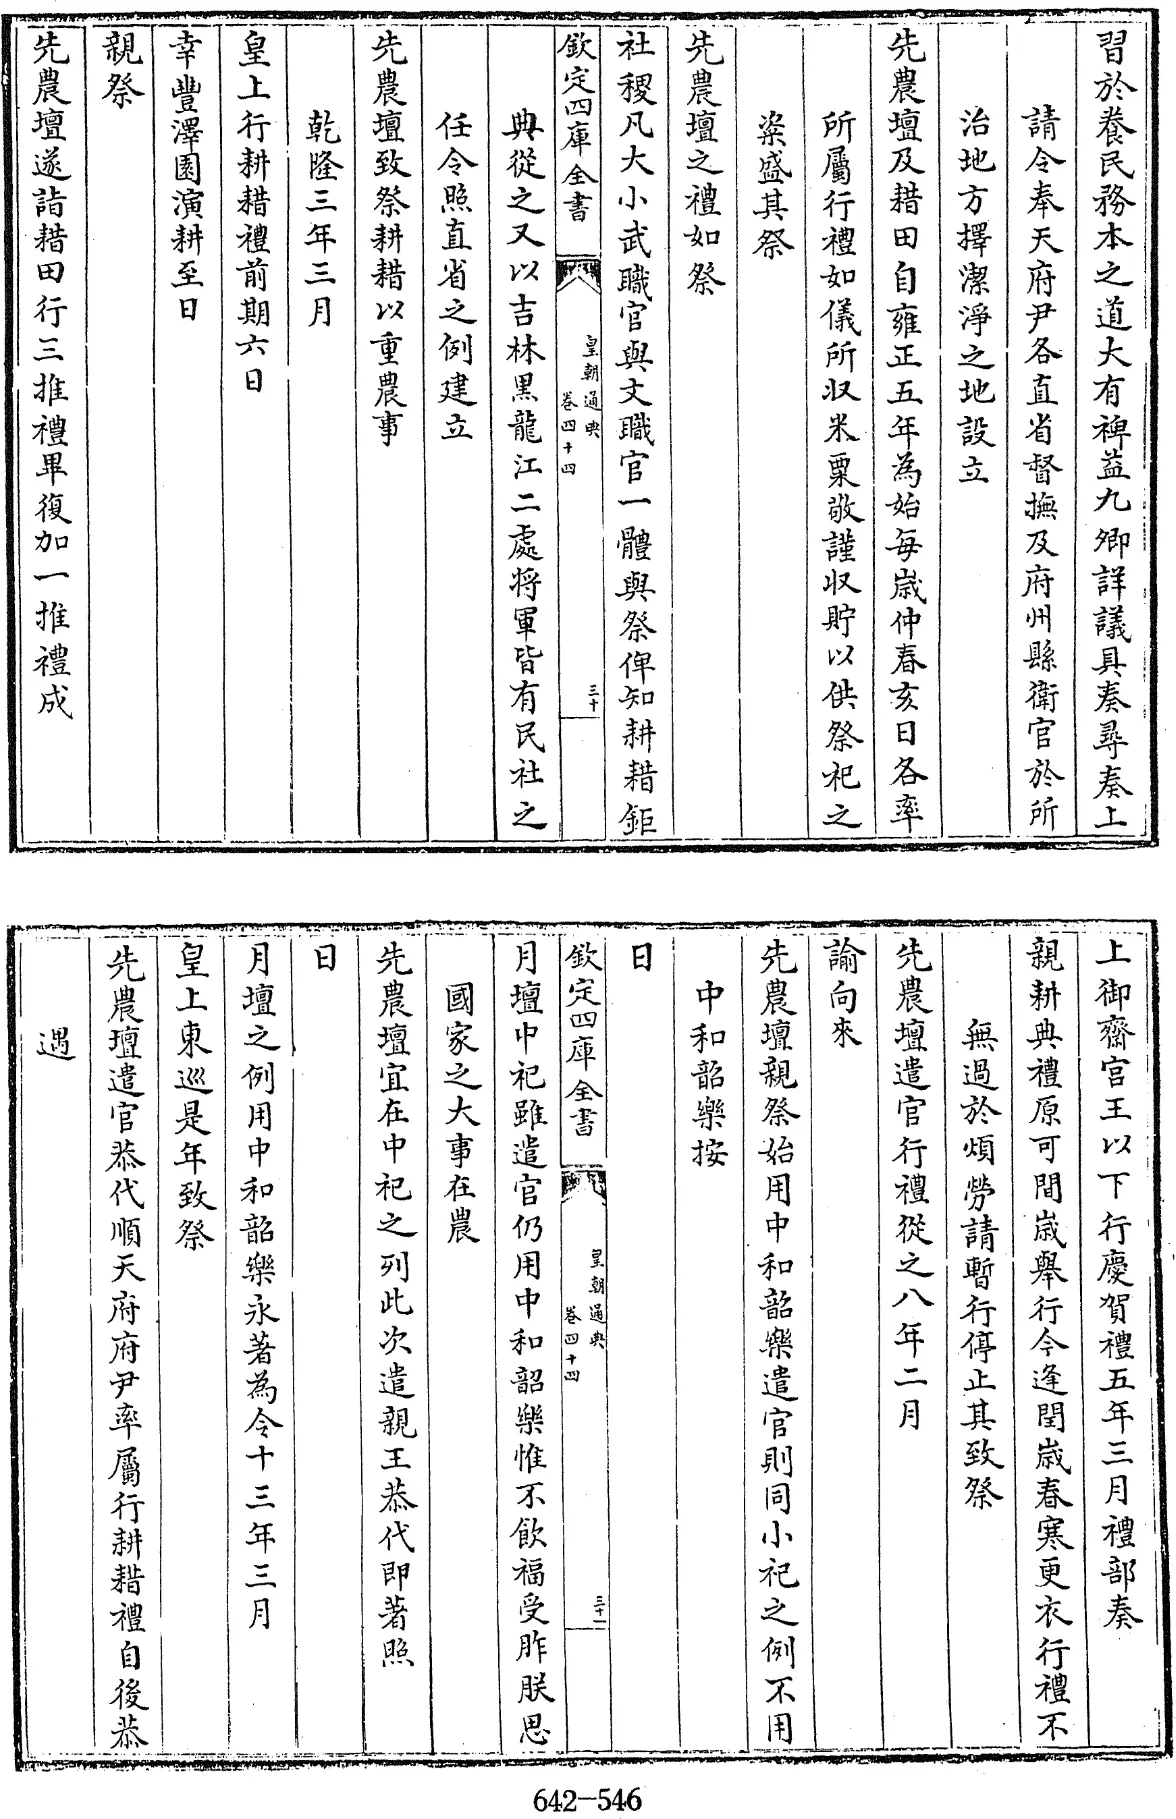 習於養民務本之道大有裨益九卿詳議具奏尋奏上
請令奉天府尹各直省督撫及府州縣衛官於所
治地方擇潔淨之地設立
先農壇及耤田自雍正五年為始每歲仲春亥日各率
所屬行禮如儀所収米粟敬謹収貯以供祭祀之
粢盛其祭
先農壇之禮如祭
社稷凡大小武職官與文職官一體與祭俾知耕耤鉅
欽定四庫全書
皇朝通典
卷四十四
三十
典從之又以吉林黑龍江二處將軍皆有民社之
任令照直省之例建立
先農壇致祭耕耤以重農事
乾隆三年三月
皇上行耕耤禮前期六日
幸豐澤園演耕至日
親祭
先農壇遂詣耤田行三推禮畢復加一推禮成
上御齋宮王以下行慶賀禮五年三月禮部奏
親耕典禮原可間歲舉行今逢閏歲春寒更衣行禮不
無過於煩勞請暫行停止其致祭
先農壇遣官行禮從之八年二月
諭向來
先農壇親祭始用中和韶樂遣官則同小祀之例不用
中和韶樂按
日
欽定四庫全書
皇朝通典
卷四十四
三十一
月壇中祀雖遣官仍用中和韶樂惟不飲福受胙朕思
國家之大事在農
先農壇宜在中祀之列此次遣親王恭代即著照
日
月壇之例用中和韶樂永著為令十三年三月
皇上東巡是年致祭
先農壇遣官恭代順天府府尹率屬行耕耤禮自後恭
遇
642-546